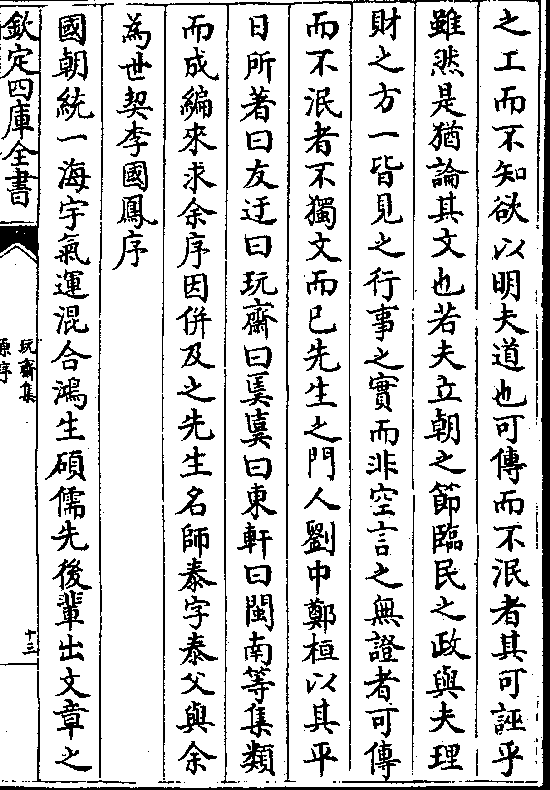 之工而不知欲以明夫道也可傳而不泯者其可誣乎
雖然是猶論其文也若夫立朝之節臨民之政與夫理
財之方一皆見之行事之實而非空言之無證者可傳
而不泯者不獨文而已先生之門人劉中鄭桓以其平
日所著曰友迂曰玩齋曰奚囊曰東軒曰閩南等集類
而成編來求余序因併及之先生名師泰字泰父與余
為世契李國鳳序
國朝統一海宇氣運混合鴻生碩儒先後輩出文章之
欽定四庫全書
玩齋集
原序
十三